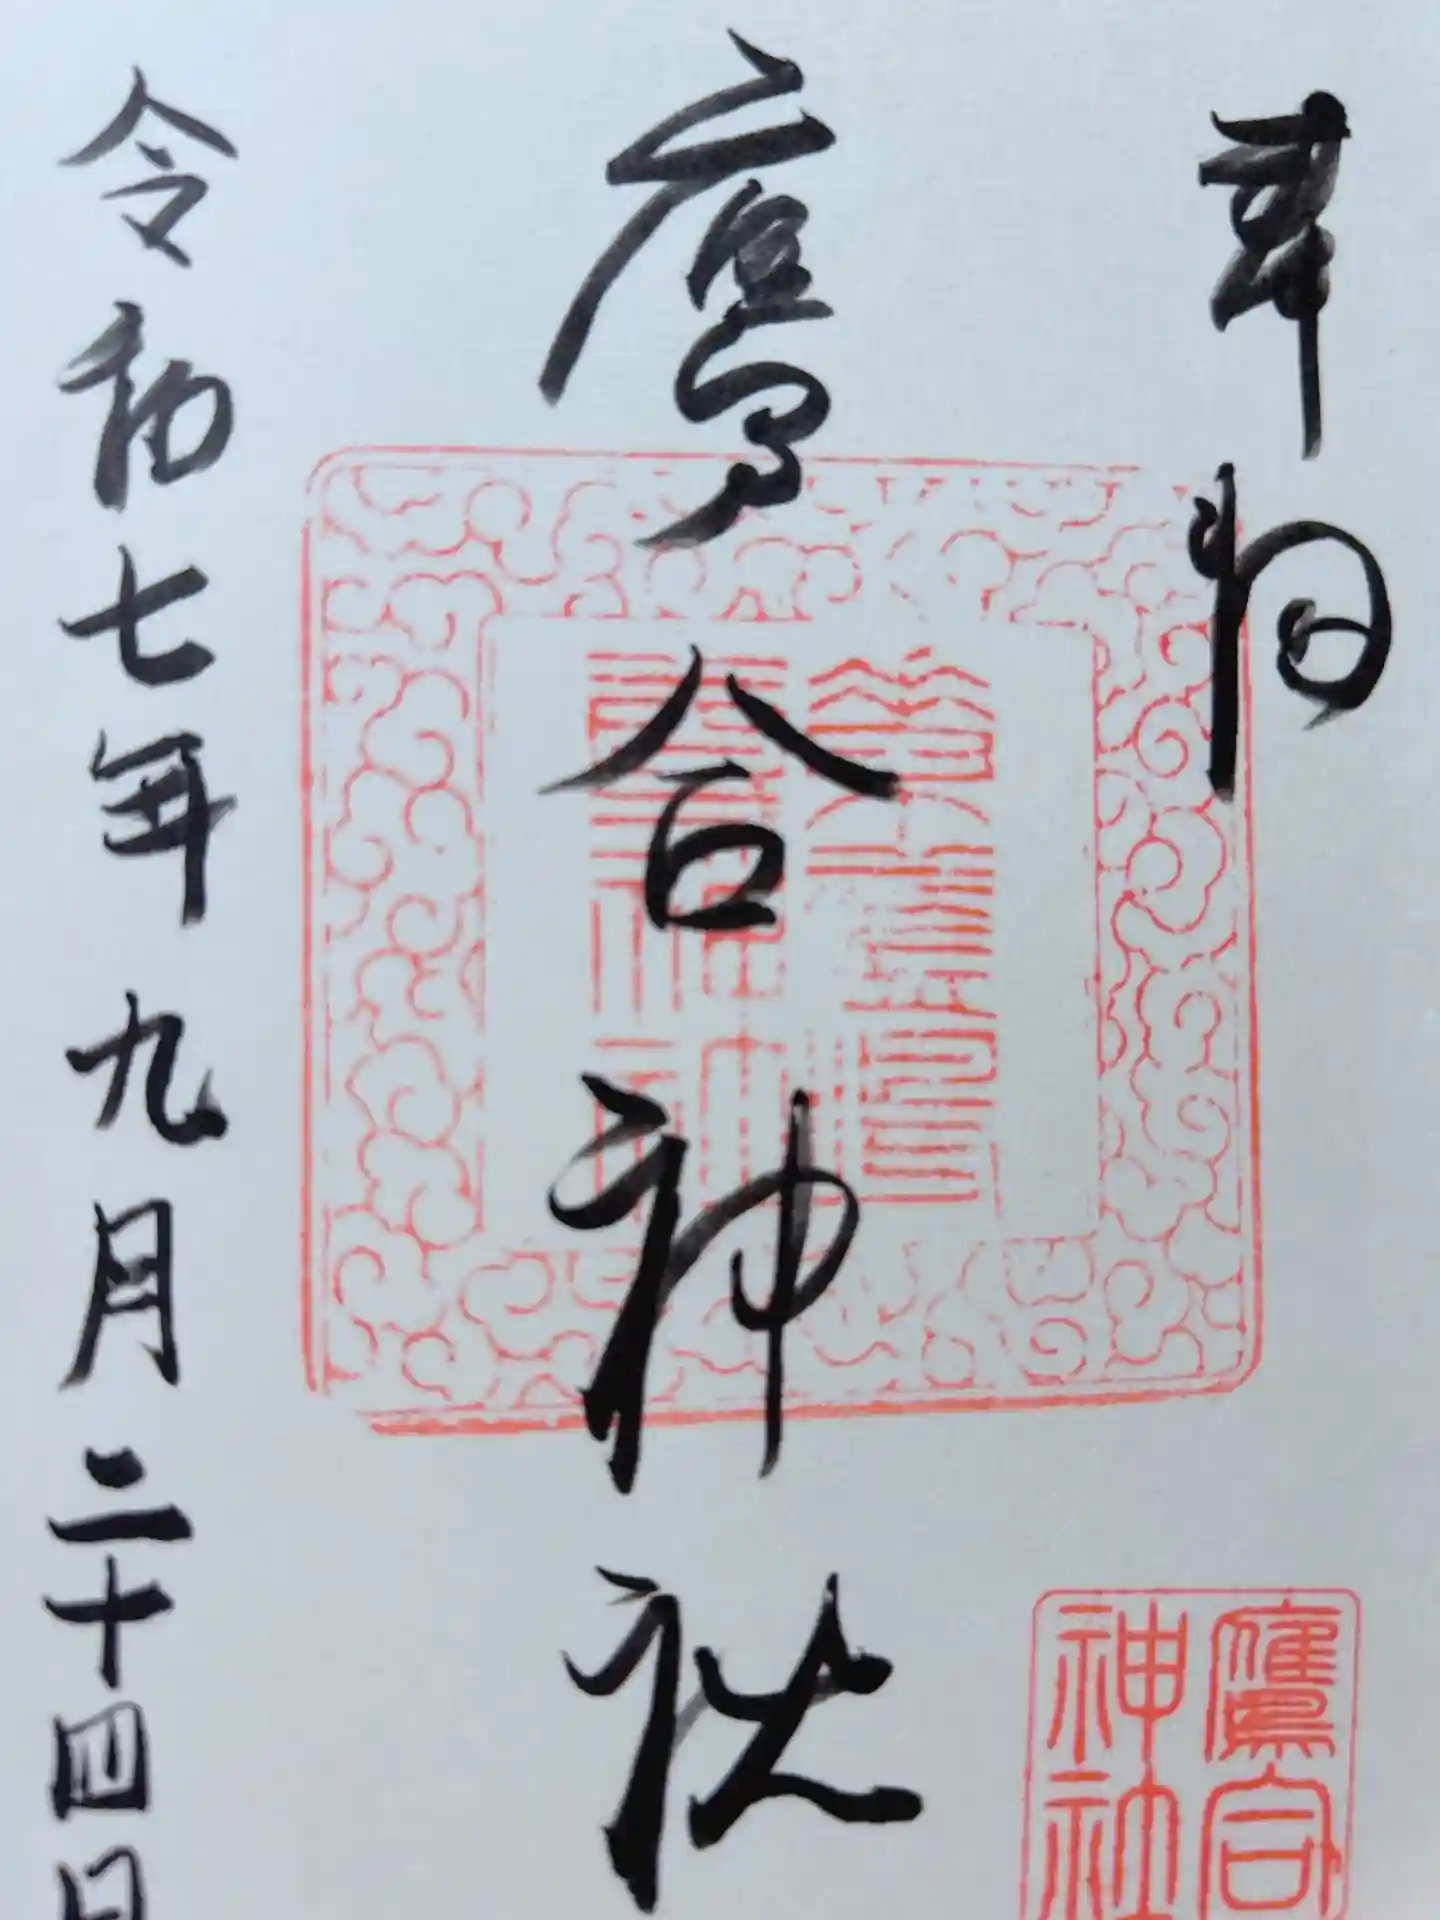 奉拝
鷹合神社
令和七年九月二十四日
鷹合
神社